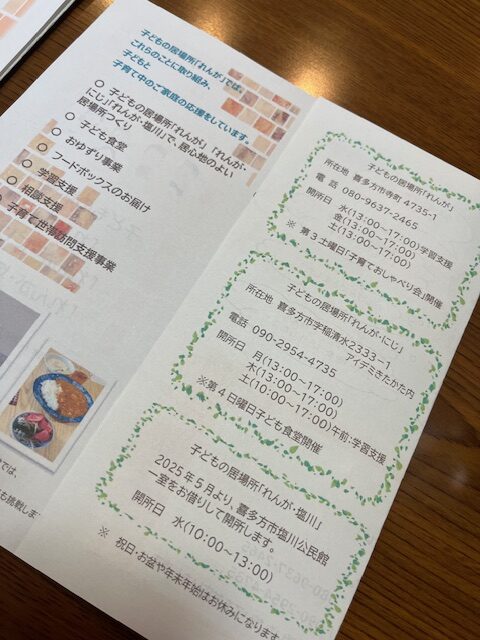 子どもの居場所「れんが」では、
これらのことに取り組み、
子どもと
子育て中のご家庭の応援をしています。
○ 子どもの居場所「れんが」「れんが・
にじ」「れんが・塩川」で、居心地のよい
居場所づくり
○ 子ども食堂
○ おゆずり事業
○ フードボックスのお届け
○ 学習支援
○ 相談支援
○ 子育て世帯訪問支援事業
では、
も挑戦しま
子どもの居場所「れんが」
所在地 喜多方市寺町 4735-1
電 話 080-9637-2465
開所日 水(13:00~17:00)学習支援
金(13:00~17:00)
土(13:00~17:00)
※ 第3土曜日「子育ておしゃべり会」開催
子どもの居場所「れんが・にじ」
所在地 喜多方市字稲清水2333-1
アイデミきたかた内
電話 090-2954-4735
開所日 月(13:00~17:00)
木(13:00~17:00)
土(10:00~17:00)午前:学習支援
※第4日曜日子ども食堂開催
子どもの居場所「れんが・塩川」
2025年5月より、喜多方市塩川公民館
一室をお借りして開所します。
開所日 水(10:00~13:00)
※ 祝日・お盆や年末年始はお休みになります